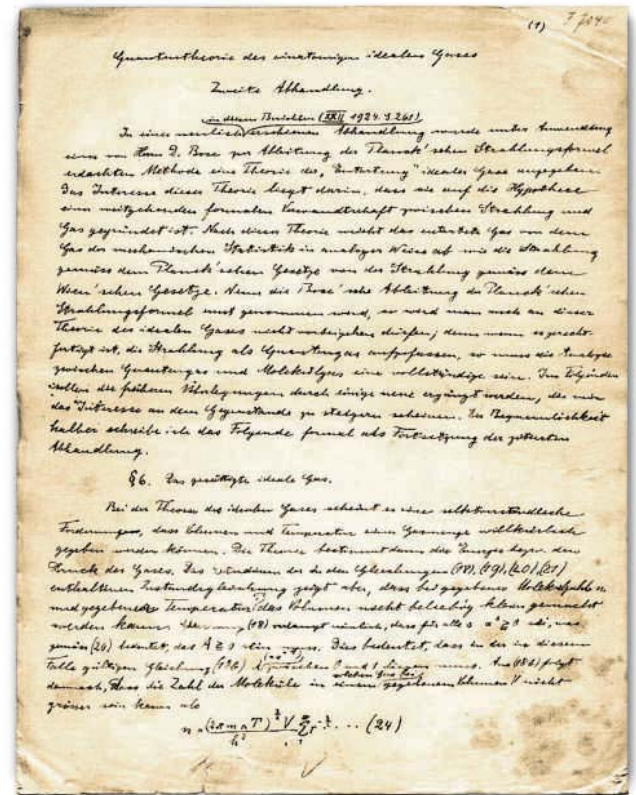 (1)
Quantentheorie des einatomigen idealen Gases
Zweite Abhandlung.
in diesen Berichten (XXII 1924. S. 261)
In einer neulich erschienen Abhandlung wurde unter Anwendung
einer von Herrn D. Bose zur Ableitung der Planck'schen Strahlungsformel
erdachten Methode eine Theorie der "Entartung" idealer Gase angegeben.
Das Interesse dieser Theorie liegt darin, dass sie auf die Hypothese
einer weitgehenden formalen Verwandtschaft zwischen Strahlung und
Gas gegründet ist. Nach dieser Theorie weicht das entartete Gas von dem
Gas der mechanischen Statistik in analoger Weise ab wie die Strahlung
gemäss dem Planck'schen Gesetze von der Strahlung gemäss dem
Wien'schen Gesetze. Wenn die Bose'sche Ableitung der Planck'schen
Strahlungsformel ernst genommen wird, so wird man auch an dieser
Theorie des idealen Gases nicht vorbeigehen dürfen; denn wenn es gerecht-
fertigt ist, die Strahlung als Quantengas aufzufassen, so muss die Analogie
zwischen Quantengas und Molekülgas eine vollständige sein. Im Folgenden
sollen die früheren Überlegungen durch einige neue ergänzt werden, die mir
das Interesse an dem Gegenstande zu steigern scheinen. Der Bequemlichkeit
halber schreibe ich das Folgende formal als Fortsetzung der zitierten
Abhandlung.
§6. Das gesättigte ideale Gas.
Bei der Theorie des idealen Gases scheint es eine selbstverständliche
Forderung, dass Volumen und Temperatur einer Gasmenge willkürlich
gegeben werden können. Die Theorie bestimmt dann die Energie bezw. den
Druck des Gases. Das Studium der in den Gleichungen (18), (19), (20), (21)
enthaltenen Zustandsgleichung zeigt aber, dass bei gegebener Molekülzahl n
und gegebener Temperatur das Volumen nicht beliebig klein gemacht
werden kann. (18) verlangt nämlich, dass für alle s sei, was
gemäss (20) bedeutet, das A ≥ 0 sein muss. Dies bedeutet, dass in der in diesem
Falle gültigen Gleichung λ zwischen 0 und 1 liegen muss. Aus folgt
demnach, dass die Zahl der Moleküle in einem gegebenen Volumen V nicht
grösser sein kann als
(24)